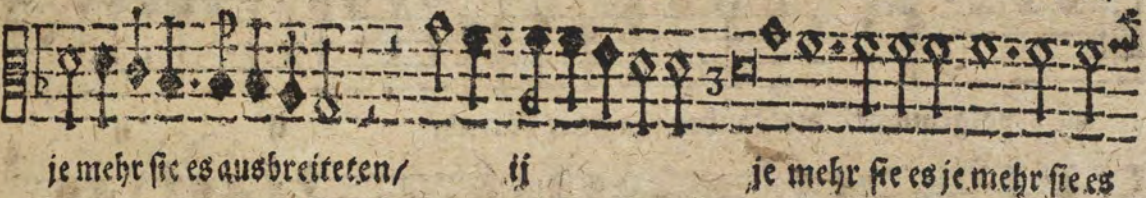 3
je mehr sie es ausbreiteten/ ij je mehr sie es je mehr sie es